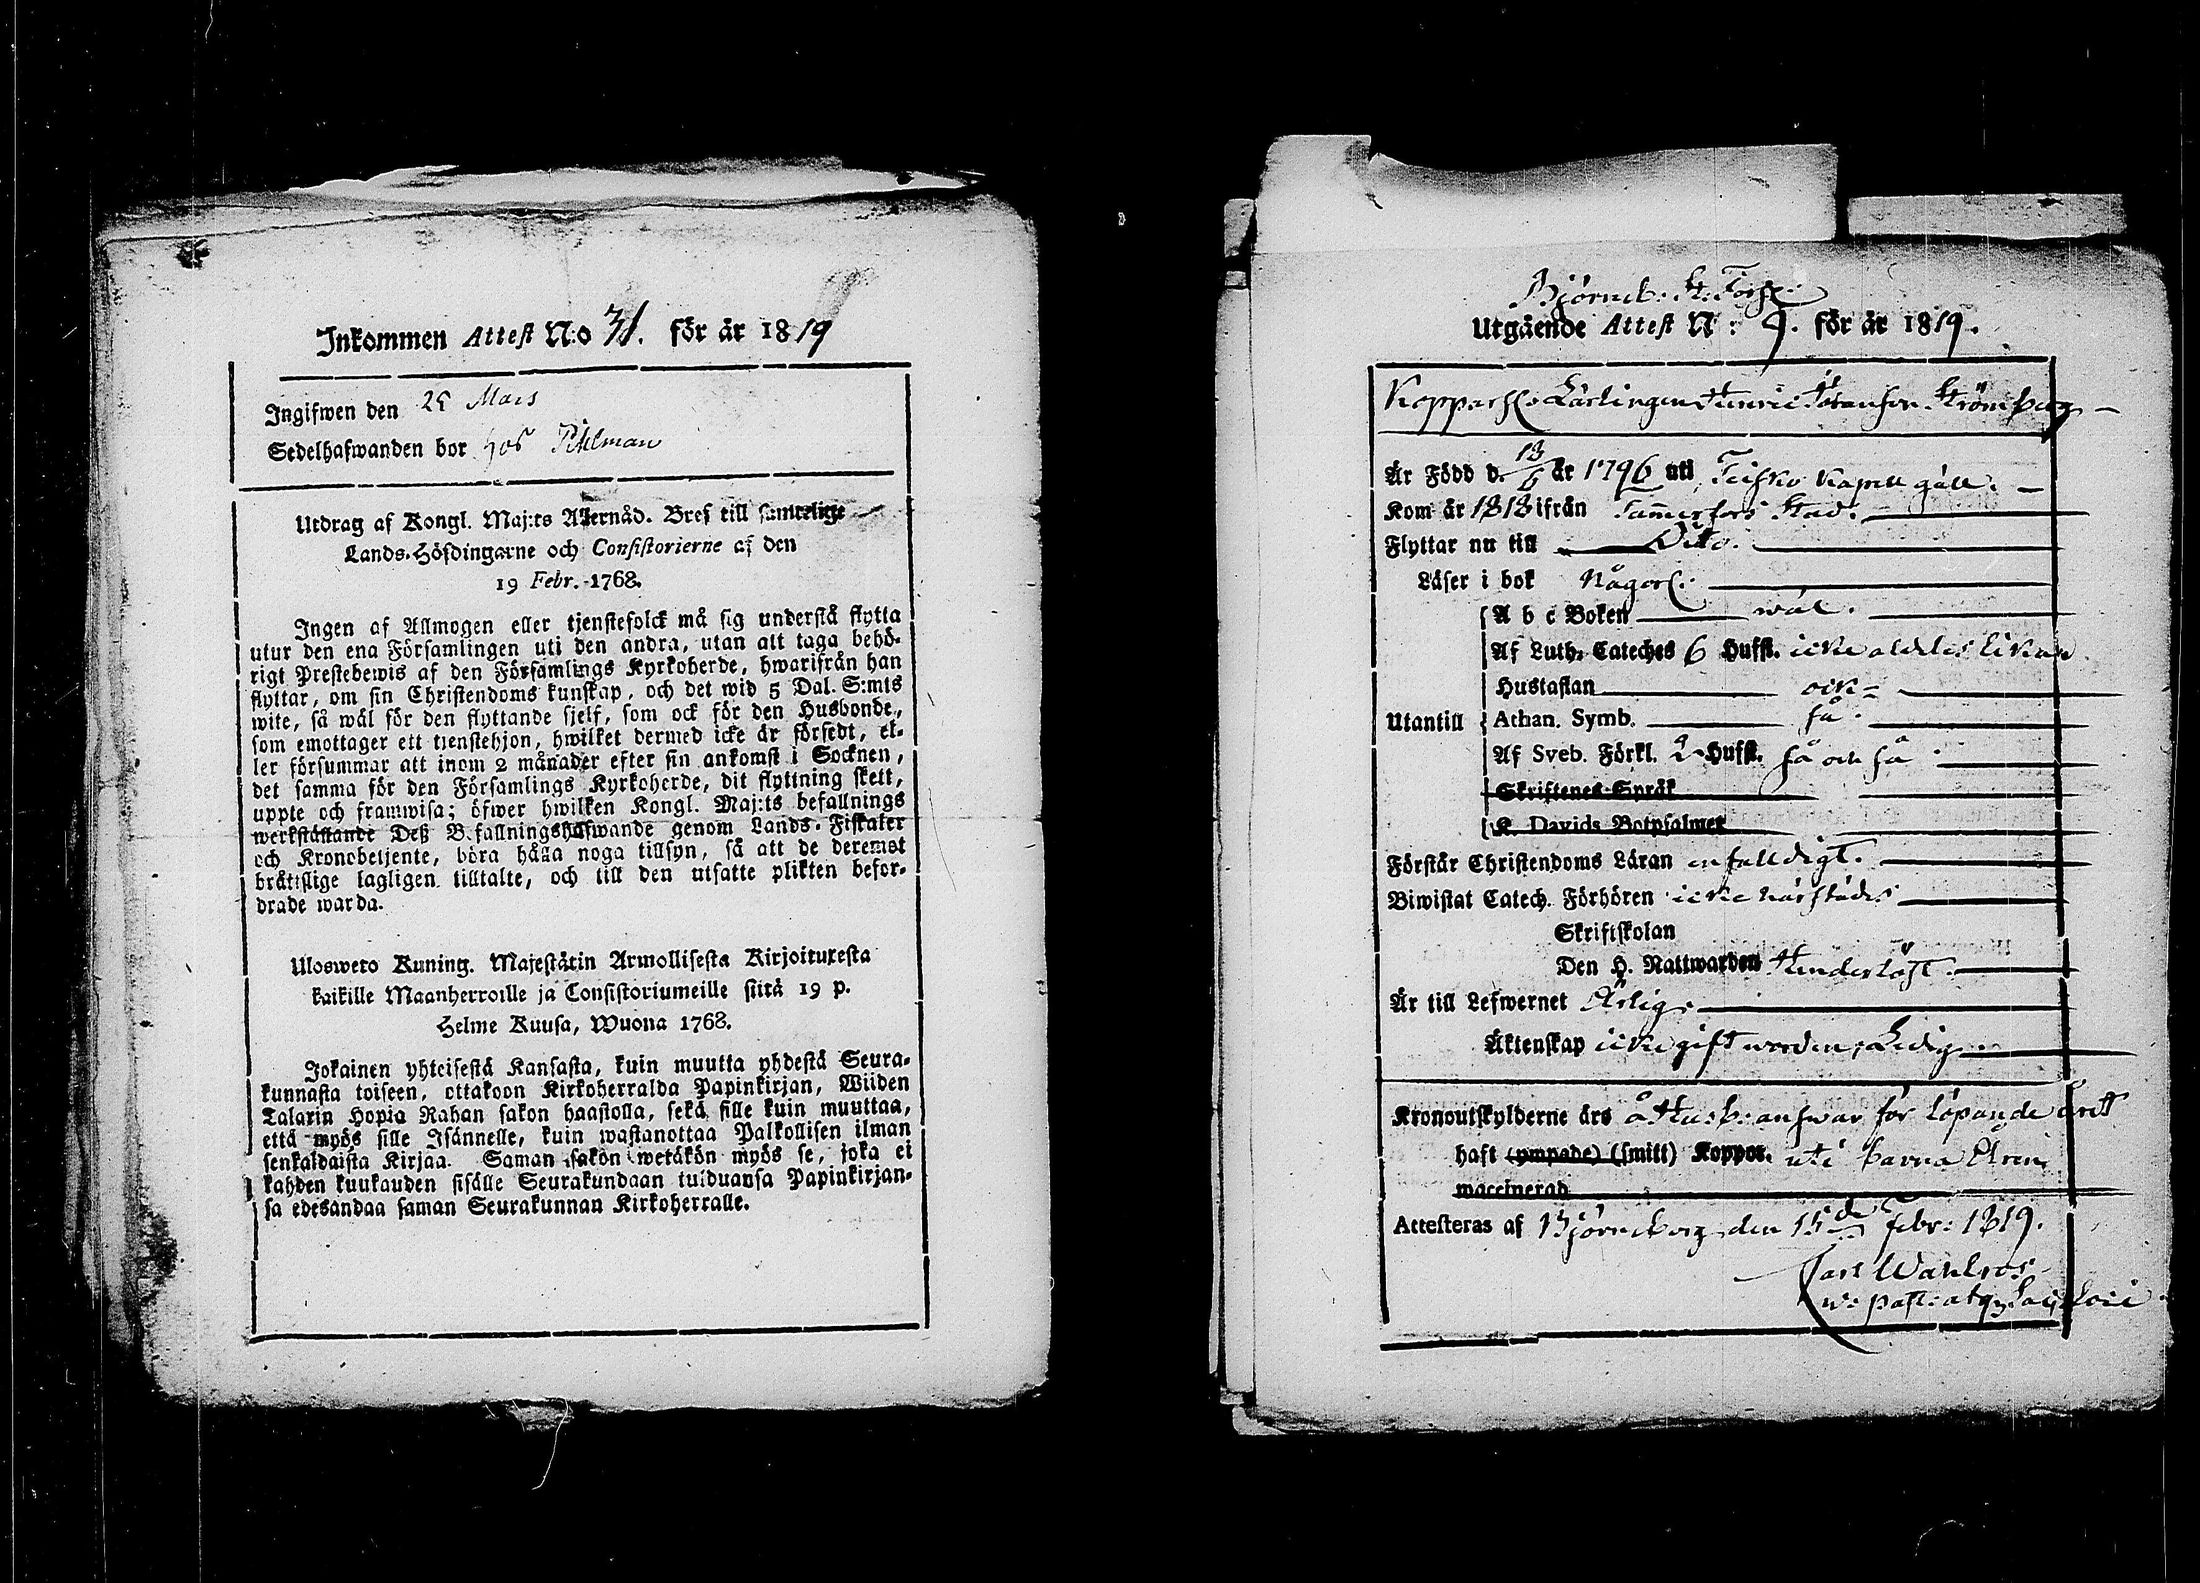 Inkommen Attest N:o 31. för år 1819
Ingifwen den 25 Mars
Sedelhafwanden bor hos Pihlman
Utdrag af Kongl. Maj:ts Allernåd. Bref till samtelige
Lands-Höfdingarne och Consistorierne af den
19 Febr. 1768.
Ingen af Allmogen eller tjenstefolck må sig understå flytta
utur den ena Församlingen uti den andra, utan att taga behö-
rigt Prestebewis af den Församlings Kyrkoherde, hwarifrån han
flyttar, om sin Christendoms kunskap, och det wid 5 Dal. S:mts
wite, så wäl för den flyttande sjelf, som ock för den Husbonde,
som emottager ett tienstehjon, hwilket dermed icke är försedt, el-
ler försummar att inom 2 månader efter sin ankomst i Socknen,
det samma för den Församlings Kyrkoherde, dit flyttning skett,
uppte och framwisa; öfwer hwilken Kongl. Maj:ts befallnings
werkställande Deß Befallningshafwande genom Lands-Fiskaler
och Kronobetjente, böra hålla noga tillsyn, så att de deremot
bråttslige lagligen tilltalte, och till den utsatte plikten befor-
drade warda.
Uloswero Kuning. Majestätin Armollisesta Kirjoituxesta
kaikille Maanherroille ja Consistoriumeille siitä 19 p.
Helme Kuusa, Wuona 1768.
Jokainen yhteisestä Kansasta, kuin muutta yhdestä Seura-
kunnasta toiseen, ottakoon Kirkoherralda Papinkirjan, Wiiden
Talarin Hopia Rahan sakon haastolla, sekä sille kuin muuttaa,
että myös sille Isännelle, kuin wastanottaa Palkollisen ilman
senkaldaista Kirjaa. Saman sakön wetäkön myös se, joka ei
kahden kuukauden sisälle Seurakundaan tulduansa Papinkirjan-
sa edesandaa saman Seurakunnan Kirkoherralle.
Björneb: St: Förs:
Utgående Attest N: 9. för år 1819.
Kopparsl: Lärlingen Henric Johansson Strömberg
Är Född d. 13/6 år 1796 uti Teisko Kapell gäll.
Kom år 1818 ifrån Tammerfors Stad.
Flyttar nu till Dito.
Läser i bok någorl:
A b c Boken wäl.
Af Luth. Cateches 6 Hufst. icke aldeles likan
Hustaflan ock
Utantill Athan. Symb. så.
Af Sveb. Förkl. 2 Hufst. så och så
Skriftenes Språk
K. Davids Botpsalmer
Förstår Christendoms Läran enfalldigt.
Biwistat Catech. Förhören icke härstädes
Skriftskolan
Den H. Nattwarden Hinderlöst.
Är till Lefwernet Ärlig.
Äktenskap icke gift worden, Ledig
Kronoutskylderne års å Husb: answar för löpande året
haft (ympade) (smitt) Koppor. uti barna Åren
waccinerad
Attesteras af Björneborg den 15de Febr: 1819.
Carl Wahlros